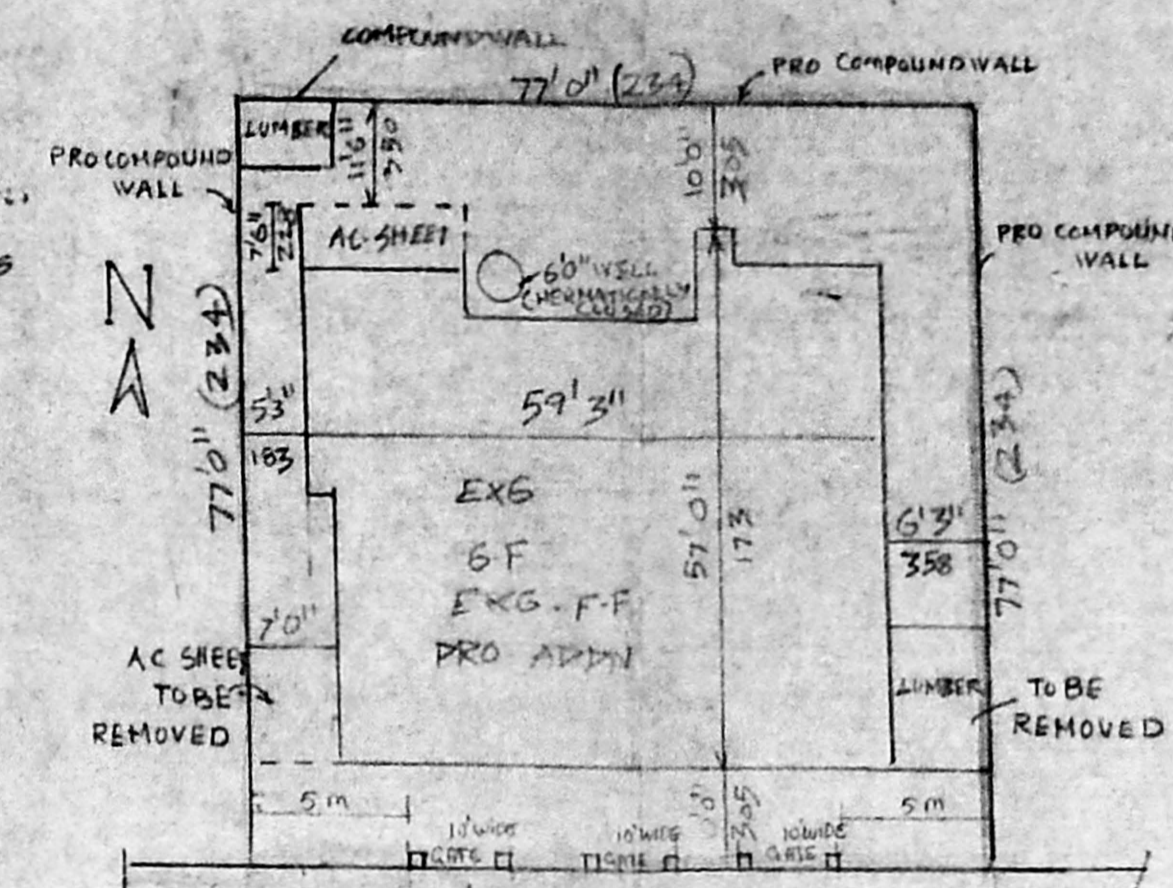 COMPOUNDWALL
77'0" (234)
PRO COMPOUNDWALL
LUMBER
11'6"
350
10'0"
305
PRO COMPOUND
WALL
7'6"
228
AC-SHEET
6'0" WELL
(HERMATICALLY
CLOSED)
PRO COMPOUN
WALL
N
77'0" (234)
5'3"
183
59'3"
EXG
G-F
EXG-F-F
PRO ADDN
57'0"
173
6'3"
358
77'0" (234)
7'0"
AC SHEET
TO BE
REMOVED
LUMBER
TO BE
REMOVED
5 m
305
5 m
10'WIDE
GATE
10'WIDE
GATE
10'WIDE
GATE